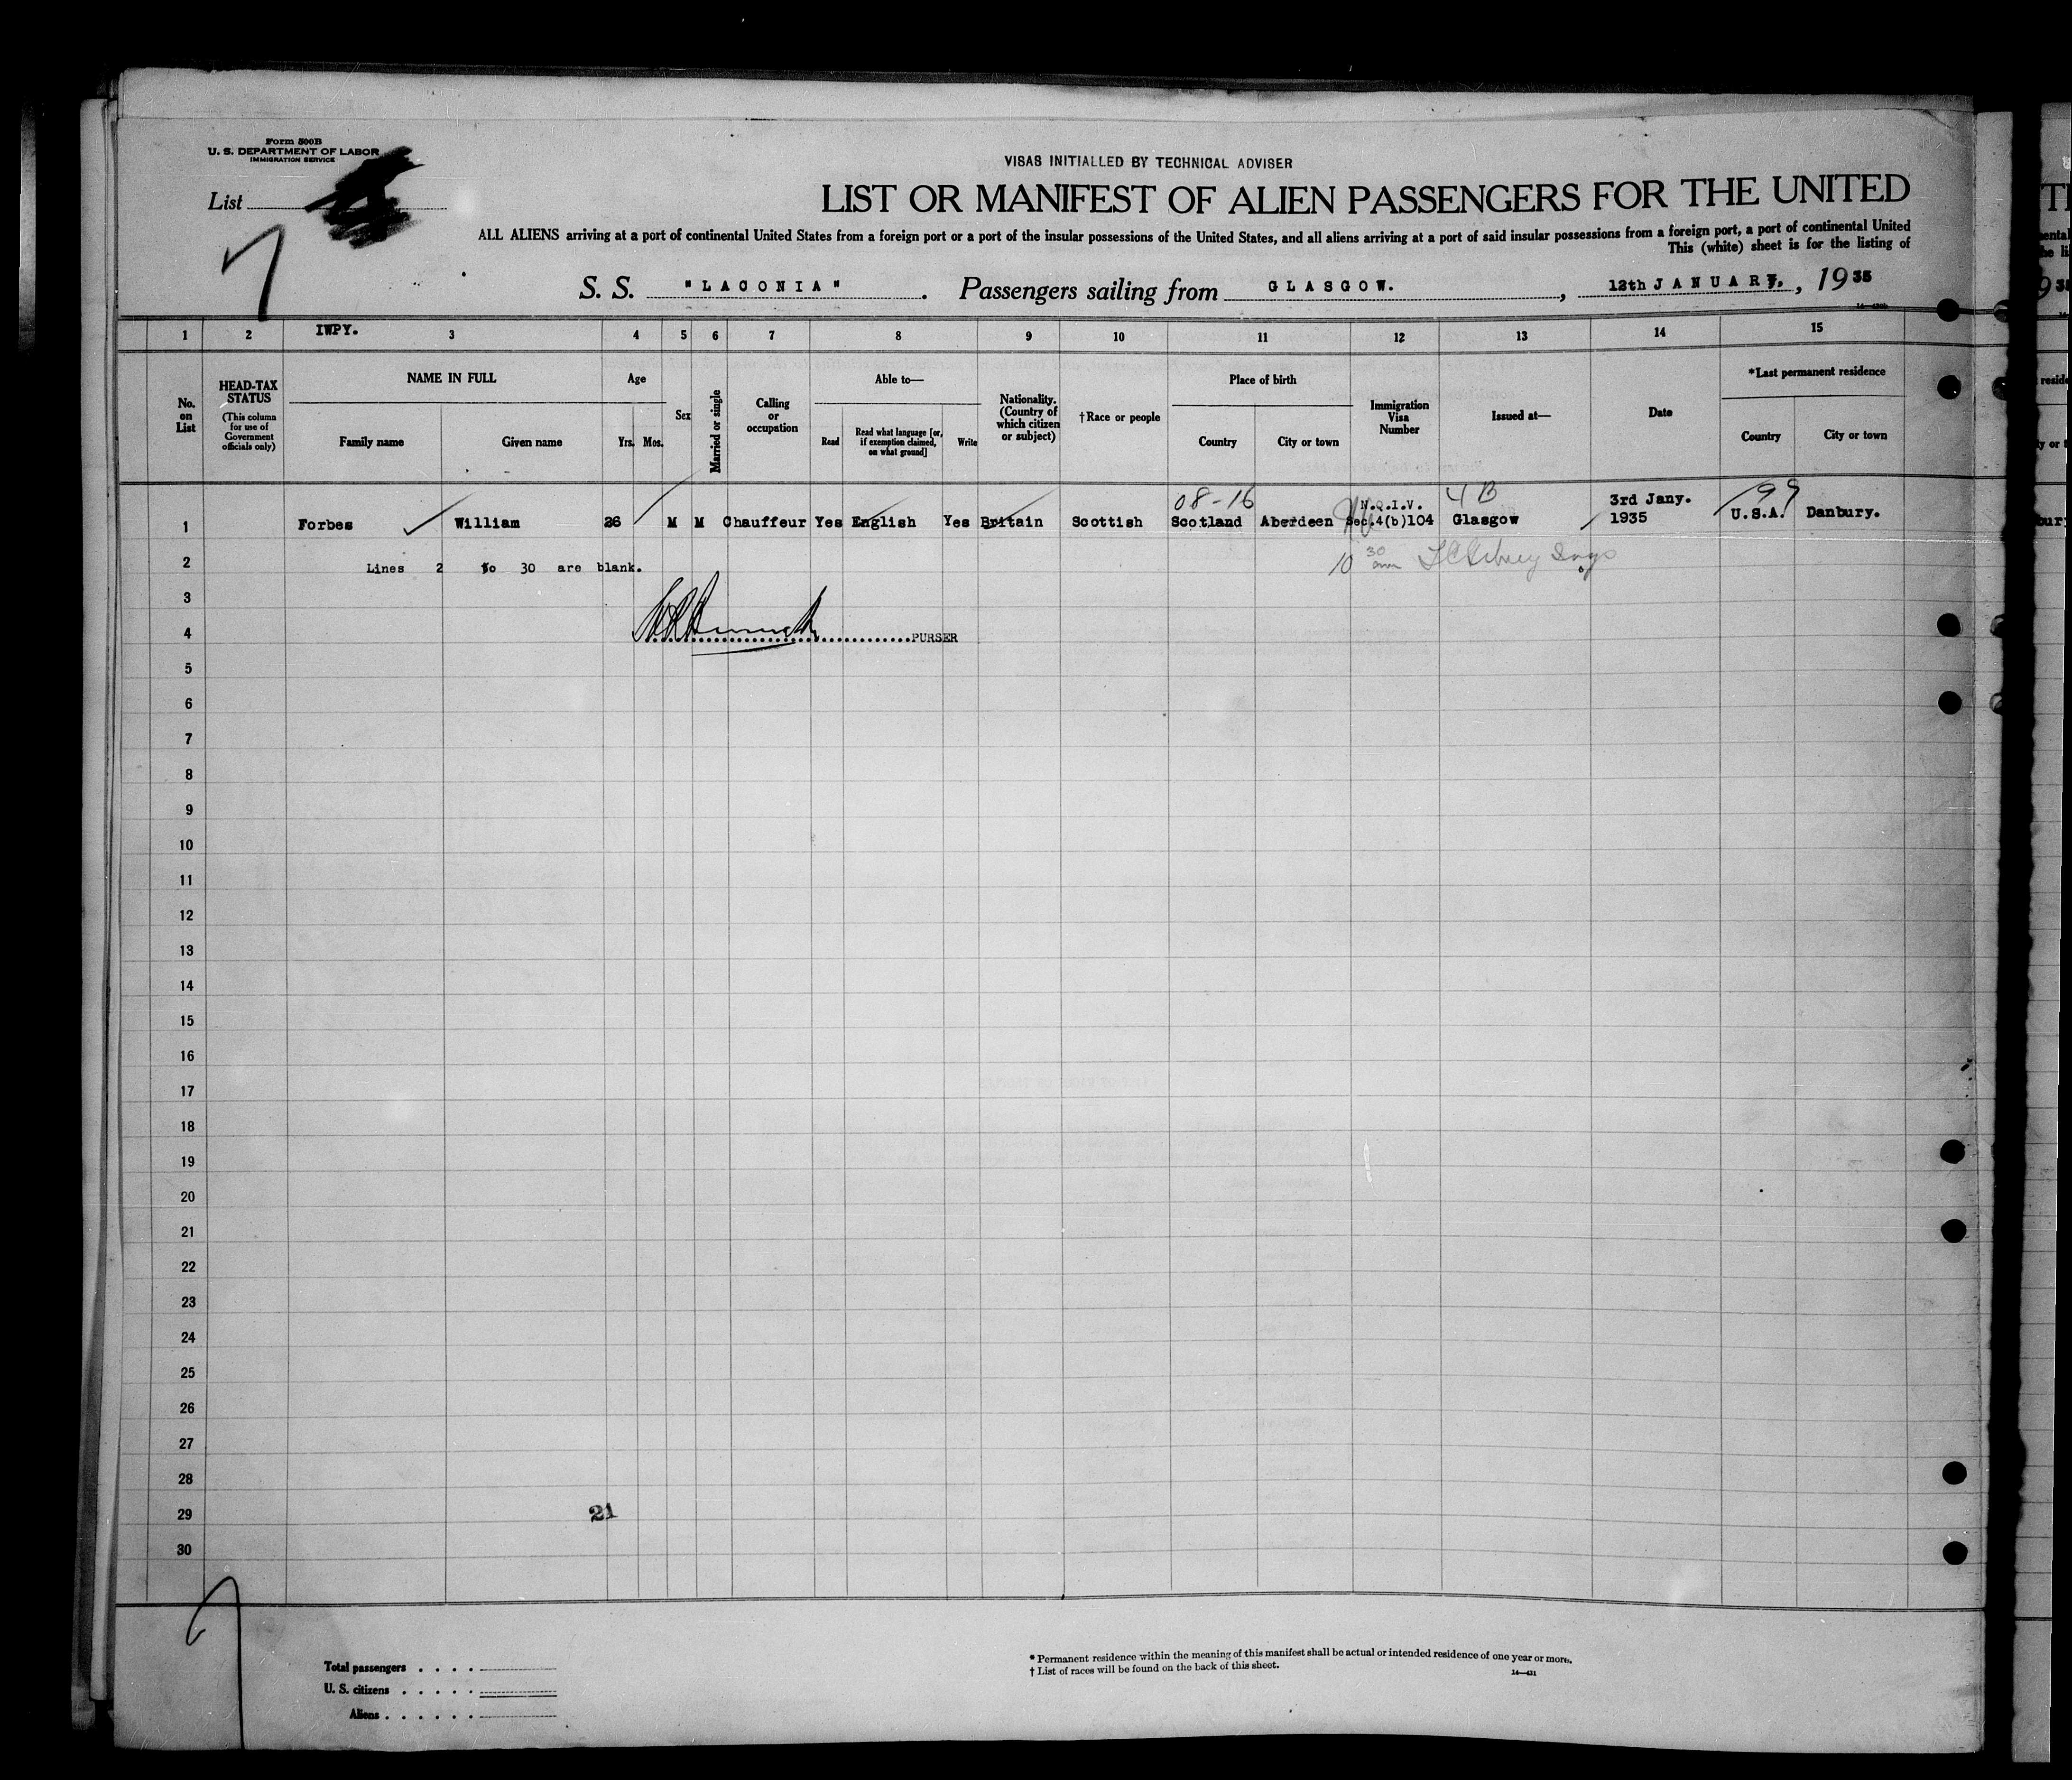 Form 500B
U. S. DEPARTMENT OF LABOR
IMMIGRATION SERVICE
VISAS INITIALLED BY TECHNICAL ADVISER
List
7
LIST OR MANIFEST OF ALIEN PASSENGERS FOR THE UNITED
ALL ALIENS arriving at a port of continental United States from a foreign port or a port of the insular possessions of the United States, and all aliens arriving at a port of said insular possessions from a foreign port, a port of continental United
This (white) sheet is for the listing of
S. S. "LACONIA" . Passengers sailing from GLASGOW. , 12th JANUARY, , 1935
1 2 IWPY. 3 4 5 6 7 8 9 10 11 12 13 14 15
No. on List
HEAD-TAX STATUS (This column for use of Government officials only)
NAME IN FULL
Family name Given name
Age
Yrs. Mos.
Sex
Married or single
Calling or occupation
Able to—
Read Read what language [or, if exemption claimed, on what ground] Write
Nationality. (Country of which citizen or subject)
†Race or people
Place of birth
Country City or town
Immigration Visa Number
Issued at—
Date
*Last permanent residence
Country City or town
08-16 N.Q.I.V. 4B 3rd Jany. 99
1 Forbes William 26 M M Chauffeur Yes English Yes Britain Scottish Scotland Aberdeen Sec.4(b)104 Glasgow 1935 U.S.A. Danbury.
2 Lines 2 to 30 are blank. 10 30 am
3
4 PURSER
5
6
7
8
9
10
11
12
13
14
15
16
17
18
19
20
21
22
23
24
25
26
27
28
29 21
30
7
Total passengers . . . .
U. S. citizens . . . . .
Aliens . . . . . .
* Permanent residence within the meaning of this manifest shall be actual or intended residence of one year or more.
† List of races will be found on the back of this sheet.
14—421